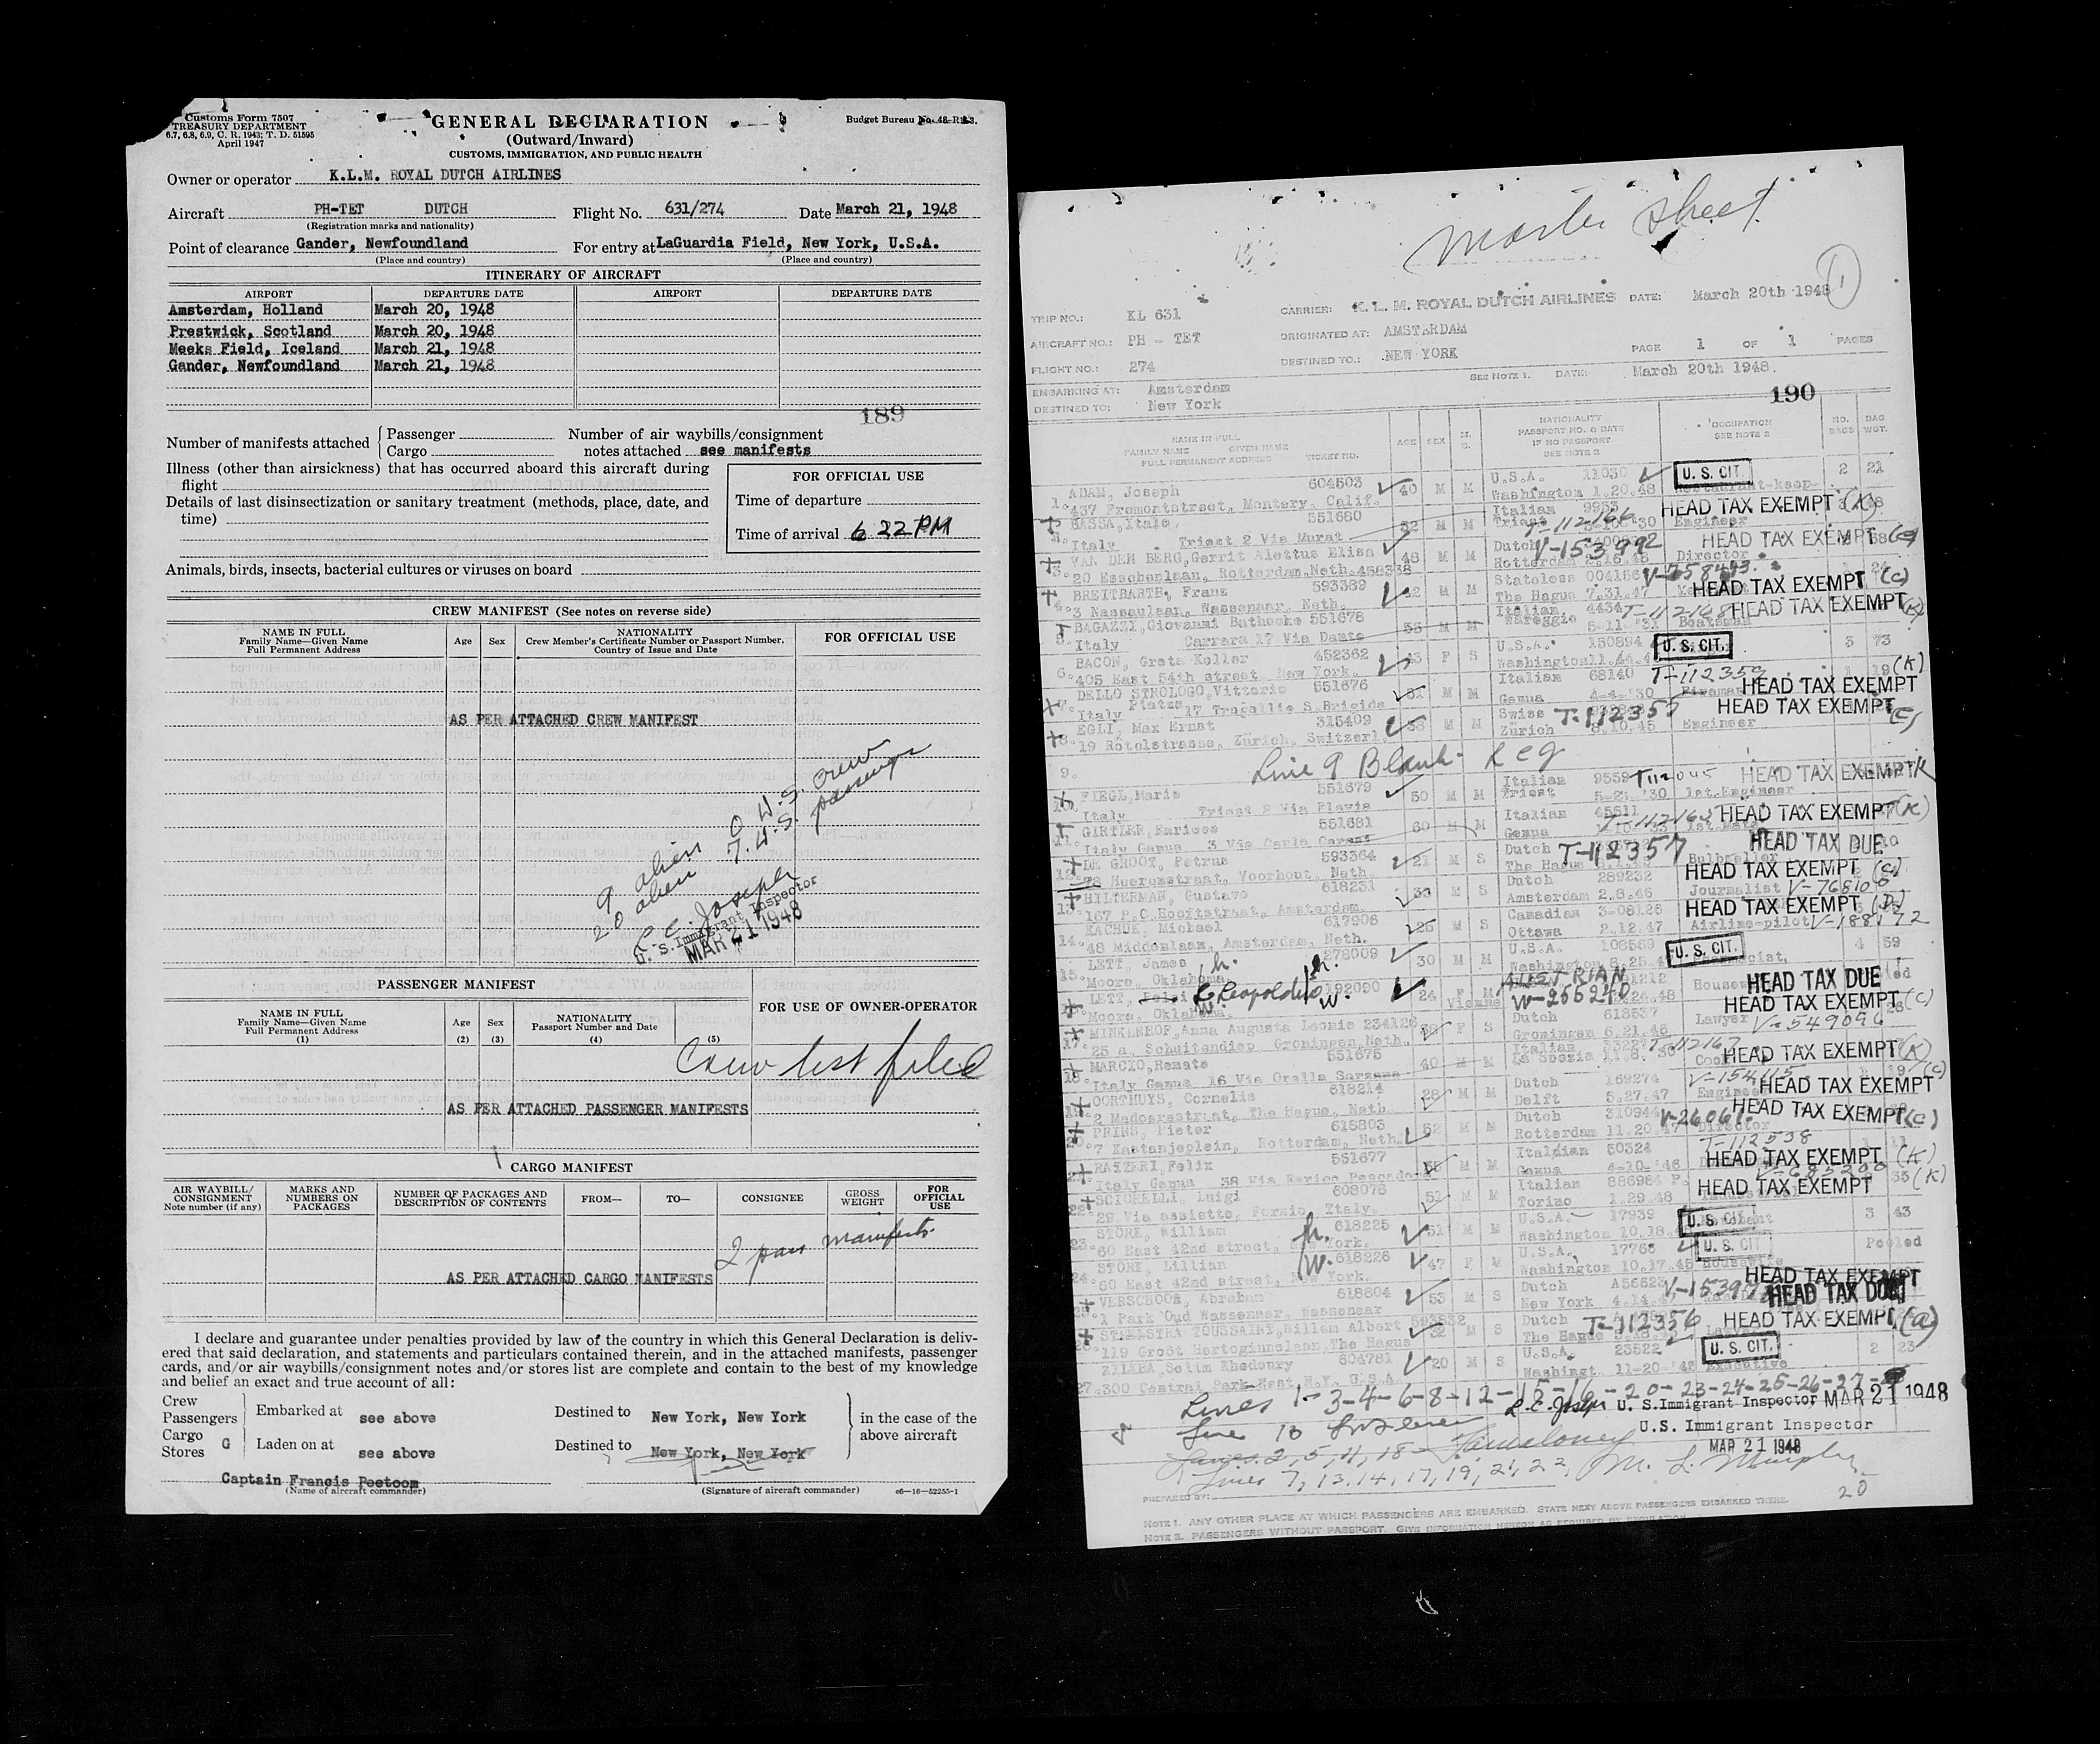 Customs Form 7507
TREASURY DEPARTMENT
6.7, 6.8, 6.9, C. R. 1943; T. D. 51595
April 1947
GENERAL DECLARATION
(Outward/Inward)
CUSTOMS, IMMIGRATION, AND PUBLIC HEALTH
Budget Bureau No. 48-R
Owner or operator K.L.M. ROYAL DUTCH AIRLINES
Aircraft PH-TET DUTCH Flight No. 631/274 Date March 21, 1948
(Registration marks and nationality)
Point of clearance Gander, Newfoundland For entry at LaGuardia Field, New York, U.S.A.
(Place and country) (Place and country)
ITINERARY OF AIRCRAFT
AIRPORT DEPARTURE DATE AIRPORT DEPARTURE DATE
Amsterdam, Holland March 20, 1948
Prestwick, Scotland March 20, 1948
Meeks Field, Iceland March 21, 1948
Gander, Newfoundland March 21, 1948
189
Number of manifests attached Passenger Cargo
Number of air waybills/consignment notes attached see manifests
Illness (other than airsickness) that has occurred aboard this aircraft during
flight
Details of last disinsectization or sanitary treatment (methods, place, date, and
time)
FOR OFFICIAL USE
Time of departure
Time of arrival 6 22 PM
Animals, birds, insects, bacterial cultures or viruses on board
CREW MANIFEST (See notes on reverse side)
NAME IN FULL
Family Name—Given Name
Full Permanent Address
Age Sex
NATIONALITY
Crew Member's Certificate Number or Passport Number.
Country of Issue and Date
FOR OFFICIAL USE
AS PER ATTACHED CREW MANIFEST
9 alien 0 U.S. crew
20 alien 7 U.S. passenger
L. E. Joseph
U. S. Immigrant Inspector
MAR 21 1948
PASSENGER MANIFEST
FOR USE OF OWNER-OPERATOR
NAME IN FULL
Family Name—Given Name
Full Permanent Address
(1)
Age
(2)
Sex
(3)
NATIONALITY
Passport Number and Date
(4)
(5)
Crew list filed
AS PER ATTACHED PASSENGER MANIFESTS
CARGO MANIFEST
AIR WAYBILL/
CONSIGNMENT
Note number (if any)
MARKS AND
NUMBERS ON
PACKAGES
NUMBER OF PACKAGES AND
DESCRIPTION OF CONTENTS
FROM—
TO—
CONSIGNEE
GROSS
WEIGHT
FOR
OFFICIAL
USE
2 pass manifests
AS PER ATTACHED CARGO MANIFESTS
I declare and guarantee under penalties provided by law of the country in which this General Declaration is deliv-
ered that said declaration, and statements and particulars contained therein, and in the attached manifests, passenger
cards, and/or air waybills/consignment notes and/or stores list are complete and contain to the best of my knowledge
and belief an exact and true account of all:
Crew
Passengers
Cargo
Stores G
Embarked at see above Destined to New York, New York
Laden on at see above Destined to New York, New York
in the case of the
above aircraft
Captain Francis Peetoom
(Name of aircraft commander)
(Signature of aircraft commander)
c6—16—52255-1
Master Sheet
1
TRIP NO.: KL 631 CARRIER: K. L. M. ROYAL DUTCH AIRLINES DATE: March 20th 1948
AIRCRAFT NO.: PH - TET ORIGINATED AT: AMSTERDAM
FLIGHT NO.: 274 DESTINED TO.: NEW YORK PAGE 1 OF 1 PAGES
EMBARKING AT: Amsterdam SEE NOTE 1. DATE: March 20th 1948.
DESTINED TO: New York
190
NAME IN FULL
FAMILY NAME GIVEN NAME
FULL PERMANENT ADDRESS TICKET NO.
AGE SEX M. S.
NATIONALITY
PASSPORT NO. & DATE
IF NO PASSPORT
SEE NOTE 2
OCCUPATION
SEE NOTE 2
NO. BAGS
BAG WGT.
1. ADAM, Joseph 604503 40 M M U.S.A. 11030 U. S. CIT. 2 21
437 Fremontstreet, Montery, Calif. Washington 1.20.48
BASSA, Italo, 551680 52 M M Italian HEAD TAX EXEMPT (K)
Italy Triest 2 Via Murat Triest T-112166 Engineer
3. VAN DEN BERG, Gerrit Alettus Elisa 48 M M Dutch V-153992 HEAD TAX EXEMPT
20 Esschenlaan, Rotterdam, Neth. 458338 Rotterdam Director
4. BREITBARTH, Franz 593389 42 M M Stateless HEAD TAX EXEMPT (C)
3 Nassaulaan, Wassenaar, Neth. The Hague 7.31.47
5. BAGAZZI, Giovanni 551678 55 M M Italian 4434 T-112168 HEAD TAX EXEMPT (K)
Italy Carrara 17 Via Dante
6. BACON, Greta Keller 452362 43 F S U.S.A. 150894 U. S. CIT. 3 73
405 East 54th street, New York. Washington
7. DELLO STROLOGO, Vittorio 551676 51 M M Italian 68140 T-112359 HEAD TAX EXEMPT (K)
Italy 17 S. Brigida Genua 4-4-'30
8. EGLI, Max Ernst 315409 38 M M Swiss HEAD TAX EXEMPT
19 Rötelstrasse, Zürich, Switzerl. Zürich 8.10.45 Engineer
9. Line 9 Blank
FIEGL, Mario 551679 50 M M Italian 9559 HEAD TAX EXEMPT K
Italy Triest 2 Via Flavia Triest 1st.Engineer
11. GIRTLER, Enrico 551681 60 M M Italian 45611 HEAD TAX EXEMPT (K)
Italy Genua 3 Via Carlo Genua
12. DE GROOT, Petrus 593364 21 M S Dutch T-112357 HEAD TAX DUE
Heeremstraat, Voorhout, Neth. The Hague
13. HILTERMAN, Gustavo 618231 33 M S Dutch 289232 HEAD TAX EXEMPT (C)
167 P.C.Hooftstraat, Amsterdam. Amsterdam 2.8.46 Journalist
14. KACHUK, Michael 617906 26 M S Canadian 3-08126 HEAD TAX EXEMPT
48 Middenlaan, Amsterdam, Neth. Ottawa 2.12.47 Airline-pilot V-188172
15. LETT, James h. 278009 30 M M U.S.A. 108569 U. S. CIT. 4 59
Moore, Oklahoma. Washington
LETT, Leopoldine 192090 w. 24 F M AUSTRIAN HEAD TAX DUE
Moore, Oklahoma. Vienna W-255240
17. MINKENHOF, Anna Augusta Leonie 234126 F S Dutch 618537 HEAD TAX EXEMPT (C)
25 a, Schuitendiep, Groningen, Neth. Groningen 6.21.46 Lawyer V-549096
18. MARCIO, Renato 551675 40 M M Italian T-112167 HEAD TAX EXEMPT (K)
Italy Genua 16 Via Orella Sarzana La Spezia Cook
19. OORTHUYS, Cornelis 618214 28 M M Dutch 169274 V-154115 HEAD TAX EXEMPT (C)
2 The Hague, Neth. Delft 5.27.47
20. PRINS, Pieter 618803 52 M M Dutch 310944 HEAD TAX EXEMPT (C)
7 Kastanjeplein, Rotterdam, Neth. Rotterdam 11.20.47 Director
21. Felix 551677 M M 50324 T-112538 HEAD TAX EXEMPT (K)
Italy Genua 38 Via Enrico Genua
22. SCIORELLI, Luigi 608078 51 M M Italian HEAD TAX EXEMPT (K)
29 Via assietta, Italy. Torino 1.29.48
23. STORK, William h. 618225 51 M M U.S.A. 17939 U. S. CIT. 3 43
60 East 42nd street, New York. Washington 10.18
24. STORK, Lillian W. 618226 47 F M U.S.A. 17766 U. S. CIT. Pooled
60 East 42nd street, New York. Washington 10.17.45
25. VERSCHOOR, Abraham 618804 53 M S Dutch HEAD TAX EXEMPT
1 Park Oud Wassenaar, Wassenaar New York HEAD TAX DUE
26. TOUSSAINT, Willem Albert 32 M S Dutch T-112356 HEAD TAX EXEMPT (a)
119 Groot Hertoginnelaan, The Hague The Hague
27. ZILKHA, Selim Khedoury 604781 20 M S U.S.A. 23522 U. S. CIT. 2 23
300 Central Park West N.Y. U.S.A. Washingt. 11-20-'4 Executive
Lines 1-3-4-6-8-12-15-16-20-23-24-25-26-27
L. E. Joseph U. S. Immigrant Inspector MAR 21 1948
U.S. Immigrant Inspector
Line 10
MAR 21 1948
Lines 2, 5, 11, 18
Lines 7, 13, 14, 17, 19, 21, 22, M. L. Murphy
20
PREPARED BY:
NOTE 1. ANY OTHER PLACE AT WHICH PASSENGERS ARE EMBARKED. STATE NEXT ABOVE PASSENGERS EMBARKED THERE.
NOTE 2. PASSENGERS WITHOUT PASSPORT. GIVE INFORMATION HEREON AS REQUIRED BY REGULATION